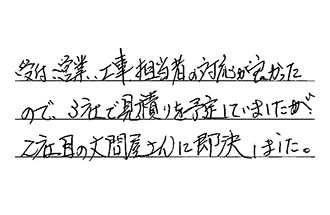 受付、営業、工事担当者の対応が良かった
ので、3社で見積りを予定していましたが、
2社目の文間屋さんに即決しました。